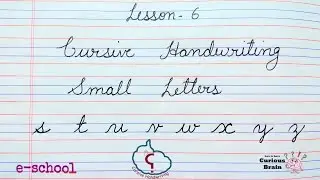 Lesson - 6
Cursive Handwriting
Small Letters
s t u v w x y z
e-school
Curious
Brain